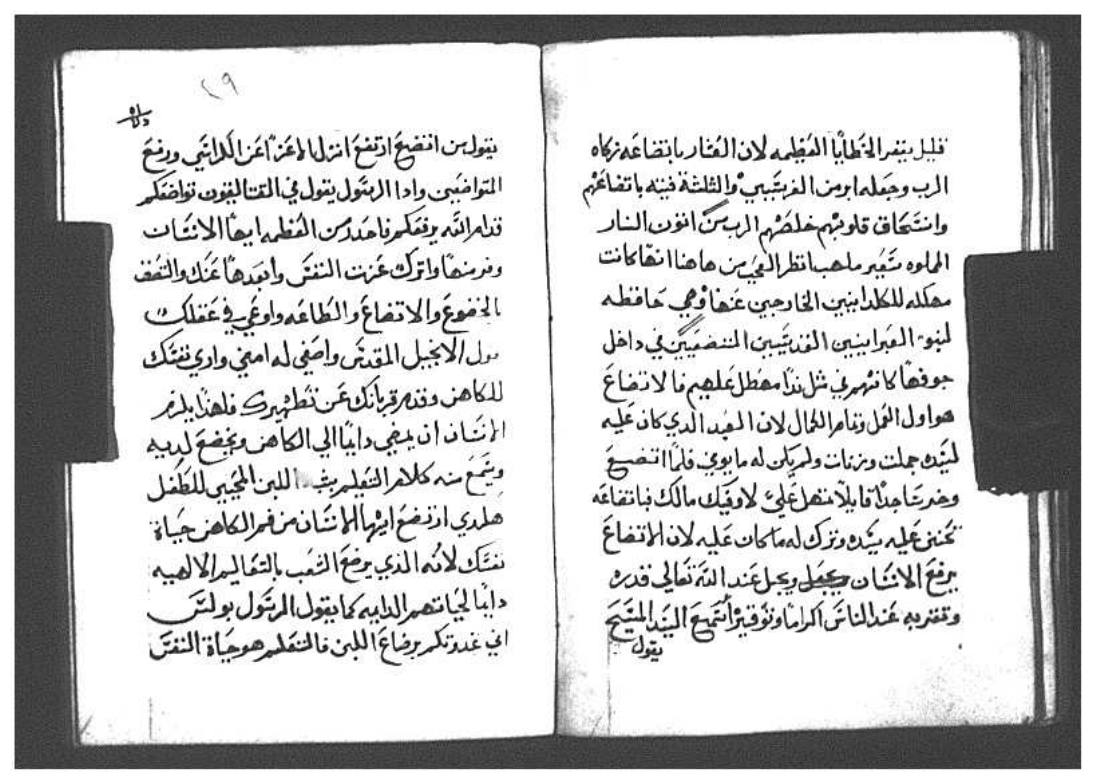 قليل يغفر الخطايا العظيمه لان العشار باتضاعه زكاه
الرب وجعله ابر من الفريسيين والثلثة فتيه باتضاعهم
وانسحاق قلوبهم خلصهم الرب من اتون النار
المملوه سعير ملهب انظر العجب من هاهنا انها كانت
مهلكه للكلدانيين الخارجين عنها وهي حافظه
لبنو العبرانيين القديسين المتضعين في داخل
جوفها كانهم في مثل ندا مهطل عليهم فالاتضاع
هو اول العمل وتمام الكمال لان العبد الدي كان عليه
لسيده جملت وزنات ولم يكن له ما يوفي فلما اتضع
وخر ساجدا قايلا تمهل علي لاوفيك مالك فباتضاعه
تحنن عليه سيده وترك له ما كان عليه لان الاتضاع
يرفع الانسان ويجل عند الله تعالي قدره
وتقتريه عند الناس اكراما وتوقيرا اسمع السيد المسيح
يقول
٤٩
يقول من اتضع ارتفع انزل الاعزا عن الكراسي ورفع
المتواضعين وادا الرسول يقول في القتاليقون تواضعكم
قدام الله يرفعكم فاحدر من العظمه ايها الانسان
وفر منها واترك عزت النفس وابعدها عنك والتحف
بالخضوع والاتضاع والطاعه واوعي في عقلك
قول الانجيل المقدس واصغي له امضي واري نفسك
للكاهن وقدم قربانك عن تطهيرك فلهذا يلزم
الانسان ان يمضي دايما الي الكاهن ويخضع لديه
ويسمع منه كلام التعليم اللبن المحيي للطفل
هلدي ارتضع ايها الانسان من فم الكاهن حياة
نفسك لانه الذي يرضع الشعب بالتعاليم الالهيه
دايما لحياتهم الدايمه كما يقول الرسول بولس
اني غدوتكم برضاع اللبن فالتعليم هو حياة النفس